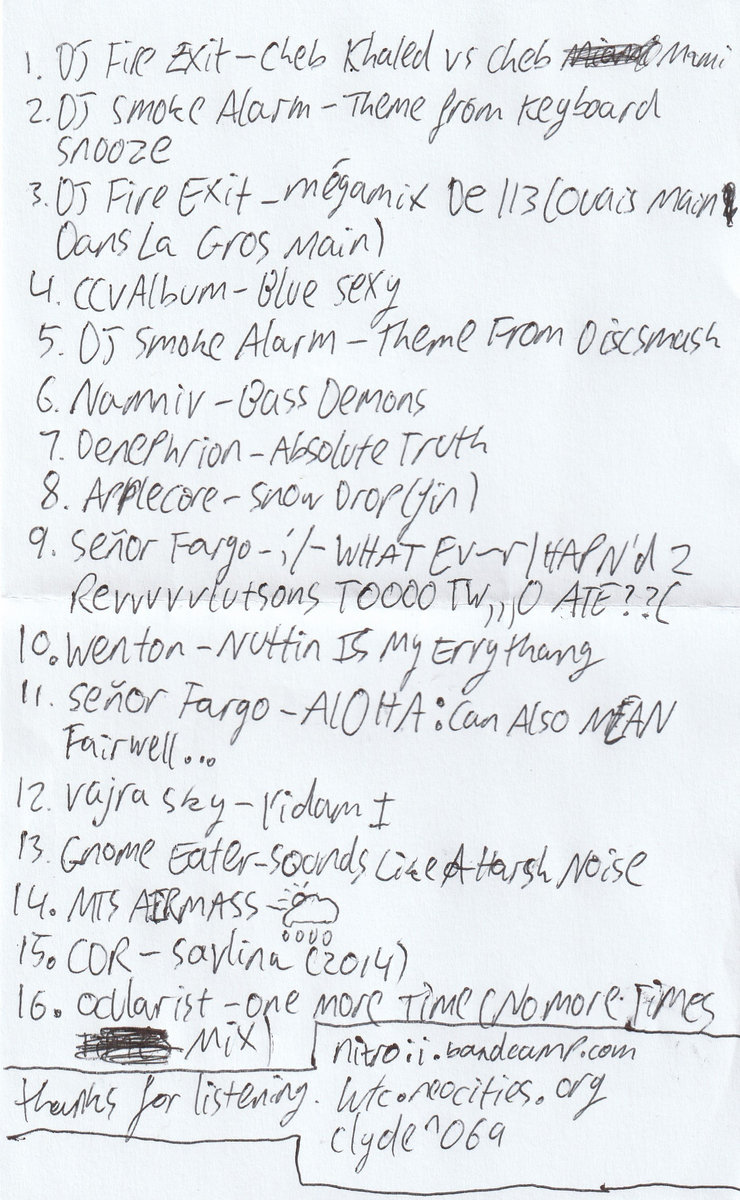 1. DJ Fire Exit - Cheb Khaled vs Cheb Mami
2. DJ Smoke Alarm - Theme from Keyboard
Snooze
3. DJ Fire Exit - mégamix De 113 (Ouais Main
Dans La Gros Main)
4. CCVAlbum - Blue Sexy
5. DJ Smoke Alarm - Theme From Discsmash
6. Namniv - Bass Demons
7. Denephrion - Absolute Truth
8. Applecore - Snow Drop (Jin)
9. Señor Fargo - ;/- WHAT Ev~r / HAPN'd 2
Revvvvvlutsons TOOOO TW,,,O ATE??(
10. Wenton - Nuttin Is My Errythang
11. Señor Fargo - ALOHA: Can Also MEAN
Fairwell...
12. Vajra Sky - Yidam I
13. Gnome Eater - Sounds Like A Harsh Noise
14. MTS AIRMASS - 
15. COR - Savlina (2014)
16. Ocularist - One more Time (No more Times
Mix)
nitroii.bandcamp.com
thanks for listening. wtc.neocities.org
clyde^069